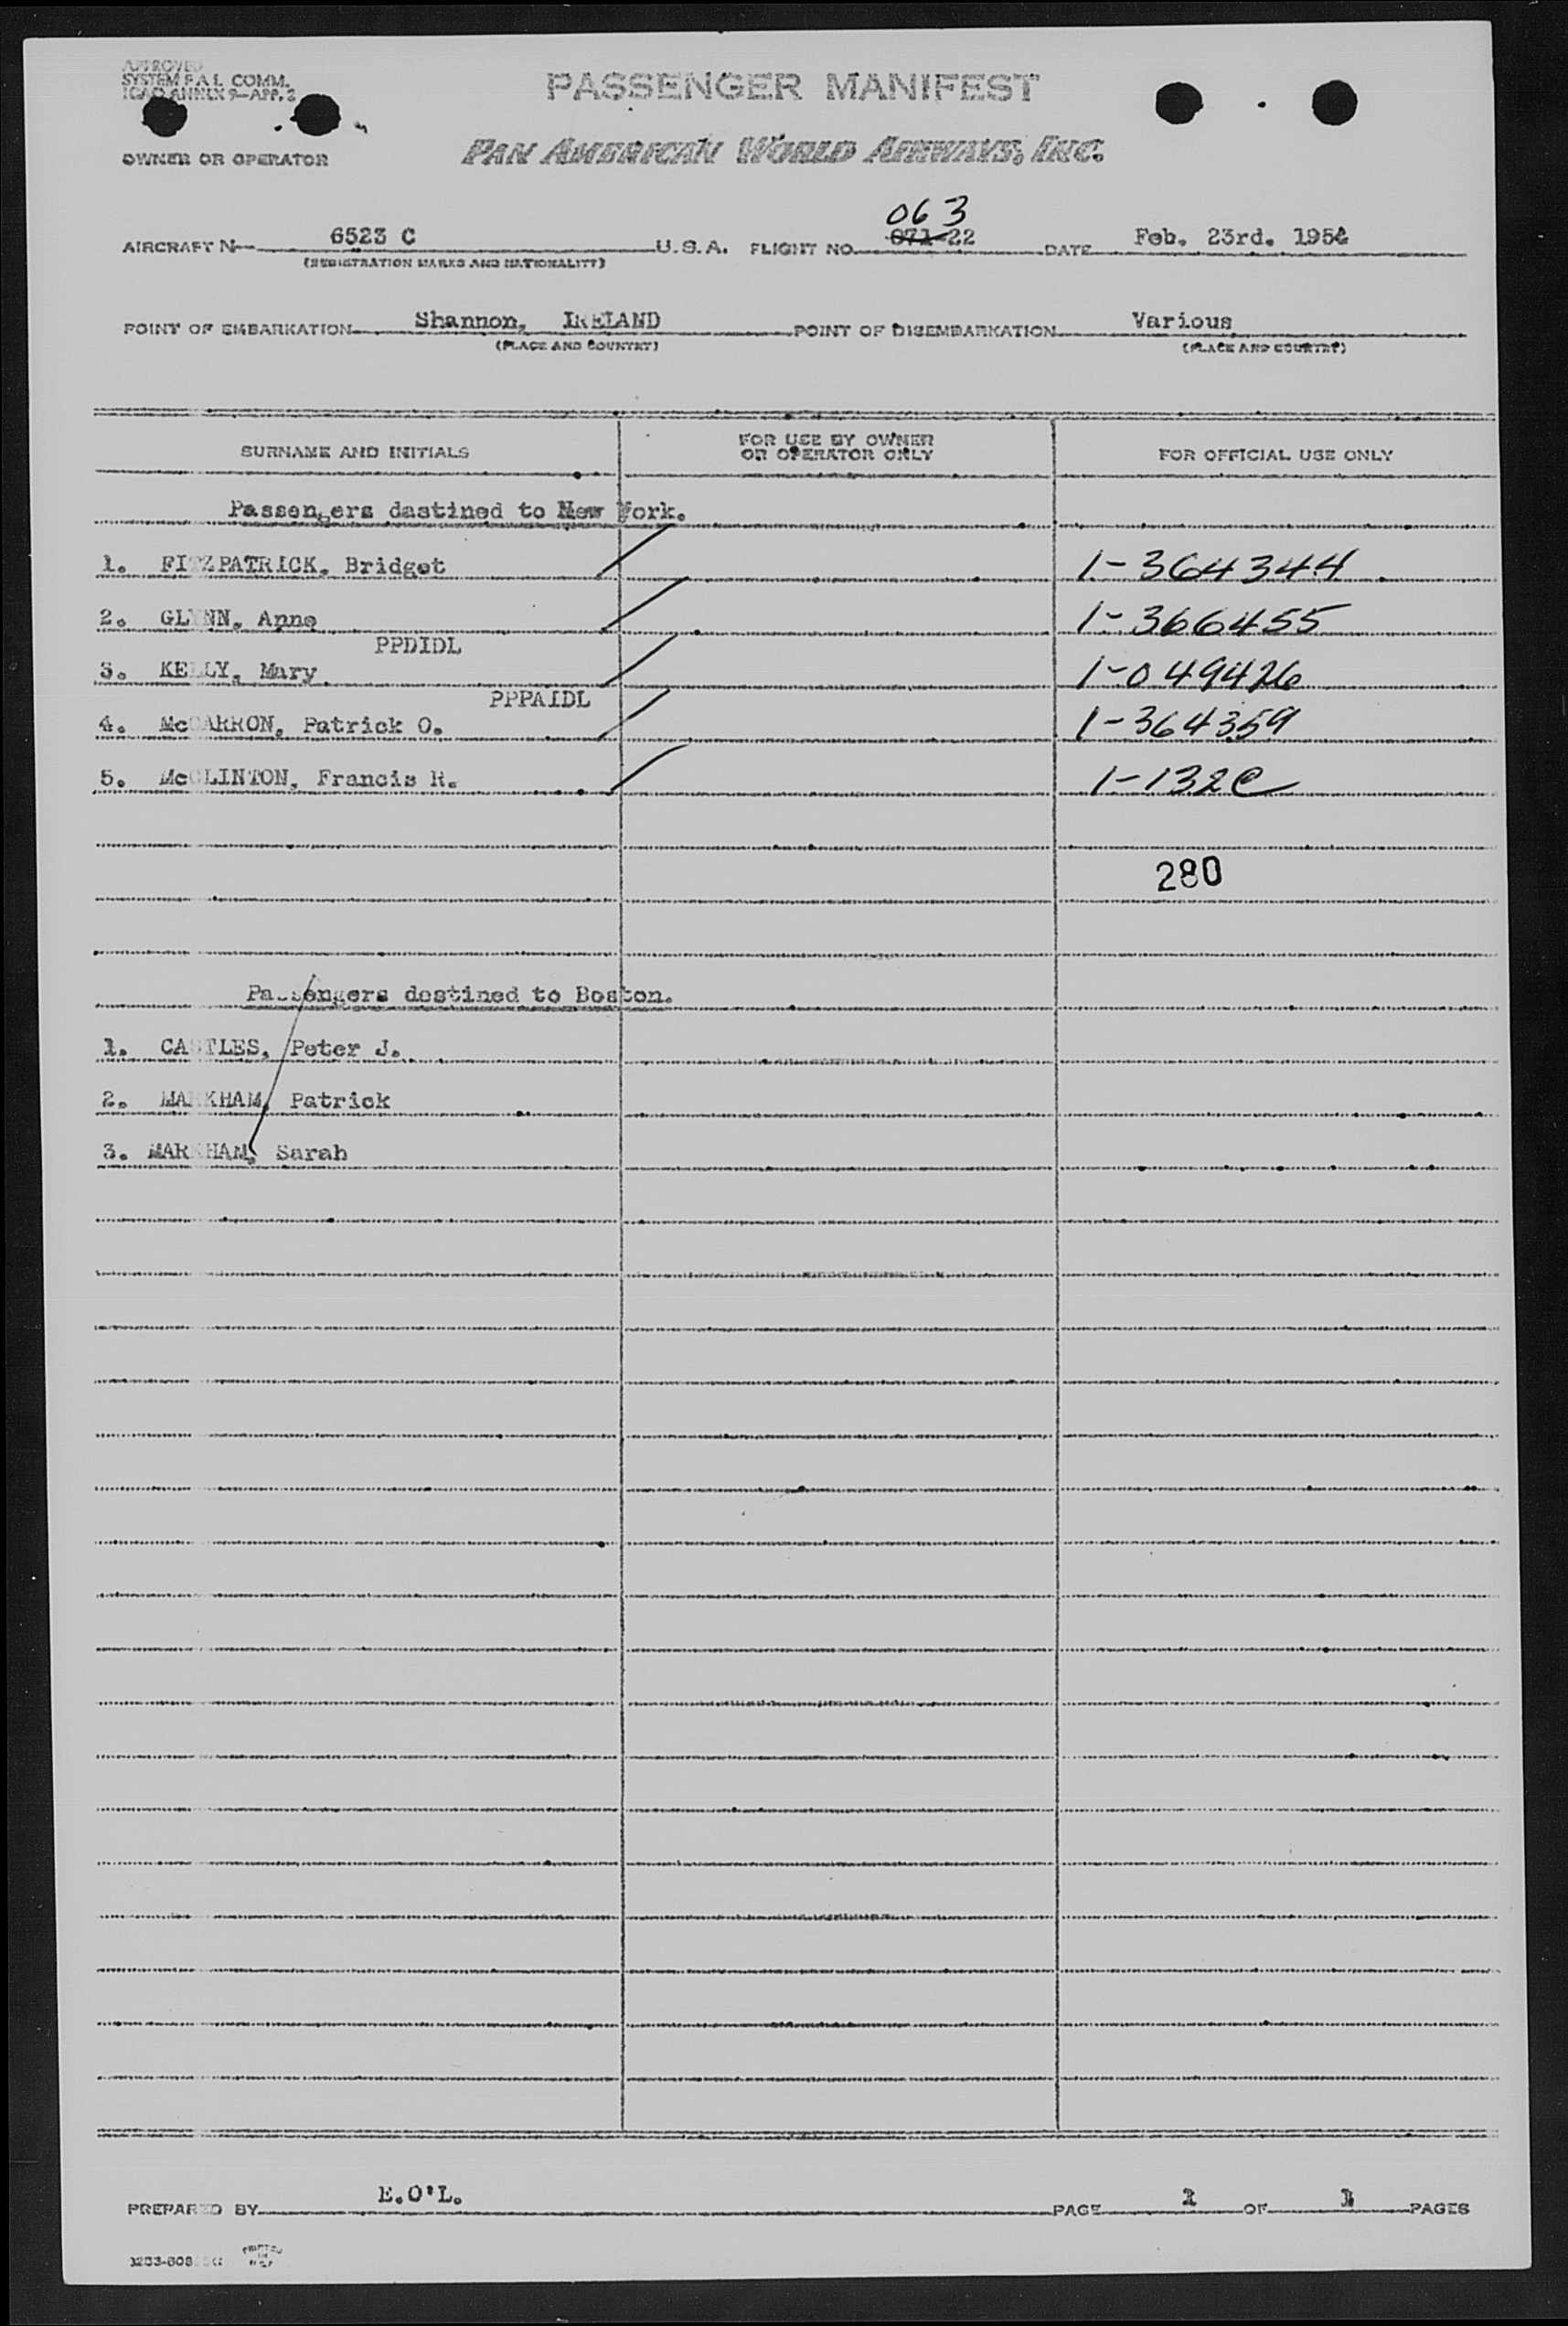 APPROVED
SYSTEM F.A.L. COMM.
ICAO ANNEX 9-APP. 2
PASSENGER MANIFEST
OWNER OR OPERATOR
PAN AMERICAN WORLD AIRWAYS, INC.
063
AIRCRAFT N 6523 C U.S.A. FLIGHT NO. 071-22 DATE Feb. 23rd. 1954
(REGISTRATION MARKS AND NATIONALITY)
POINT OF EMBARKATION Shannon, IRELAND POINT OF DISEMBARKATION Various
(PLACE AND COUNTRY) (PLACE AND COUNTRY)
SURNAME AND INITIALS
FOR USE BY OWNER
OR OPERATOR ONLY
FOR OFFICIAL USE ONLY
Passengers dastined to New York.
1. FITZPATRICK, Bridget 1-364344
2. GLYNN, Anne 1-366455
PPDIDL
3. KELLY, Mary 1-049426
PPPAIDL
4. McCARRON, Patrick O. 1-364359
5. McCLINTON, Francis R. 1-132C
280
Passengers destined to Boston.
1. CASTLES, Peter J.
2. MARKHAM, Patrick
3. MARKHAM, Sarah
PREPARED BY E.O'L. PAGE 1 OF 1 PAGES
PRINTED
IN